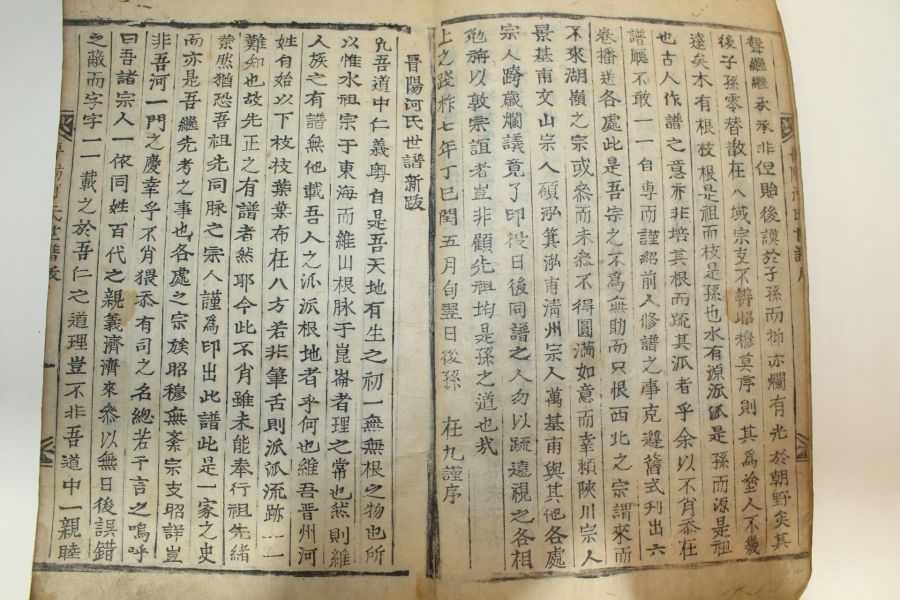 聲繼繼承承非但貽後謨於子孫而抑亦爛有光於朝野矣其
後子孫零替散在八域宗支不辨昭穆莫序則其爲塗人不幾
遠矣木有根枝根是祖而枝是孫也水有源派派是孫而源是祖
也古人作譜之意亦非培其根而疏其派者乎余以不肖忝在
譜廳不敢一一自專而謹紹前人修譜之事克遵舊式刊出六
卷播送各處此是吾宗之不爲無助而只恨西北之宗謂來而
不來湖嶺之宗或叅而未叅不得圓滿如意而幸賴陜川宗人
景基甫文山宗人碩泓箕泓甫淸州宗人萬基甫與其他各處
宗人跨歲爛議竟了印役日後同譜之人勿以疏遠視之各相
勉旃以敦宗誼者豈非顧先祖均是孫之道也哉
上之踐祚七年丁巳閏五月旬翌日後孫 在九謹序
晋陽河氏世譜新跋
凡吾道中仁義粤自是吾天地有生之初一無無根之物也所
以惟水祖宗于東海而維山根脉于崑崙者理之常也然則維
人族之有譜無他載吾人之派派根地者乎何也維吾晋州河
姓自始以下枝枝葉葉布在八方若非筆舌則派派流跡一一
難知也故先正之有譜者然耶今此不肖雖未能奉行祖先緖
業然猶恐吾祖先同脉之宗人謹爲印出此譜此是一家之史
而亦是吾繼先考之事也各處之宗族昭穆無紊宗支昭詳豈
非吾河一門之慶幸乎不肖猥忝有司之名總若干言之嗚呼
曰吾諸宗人一依同姓百代之親義濟濟來叅以無日後誤錯
之蔽而字字一一載之於吾仁之道理豈不非吾道中一親睦